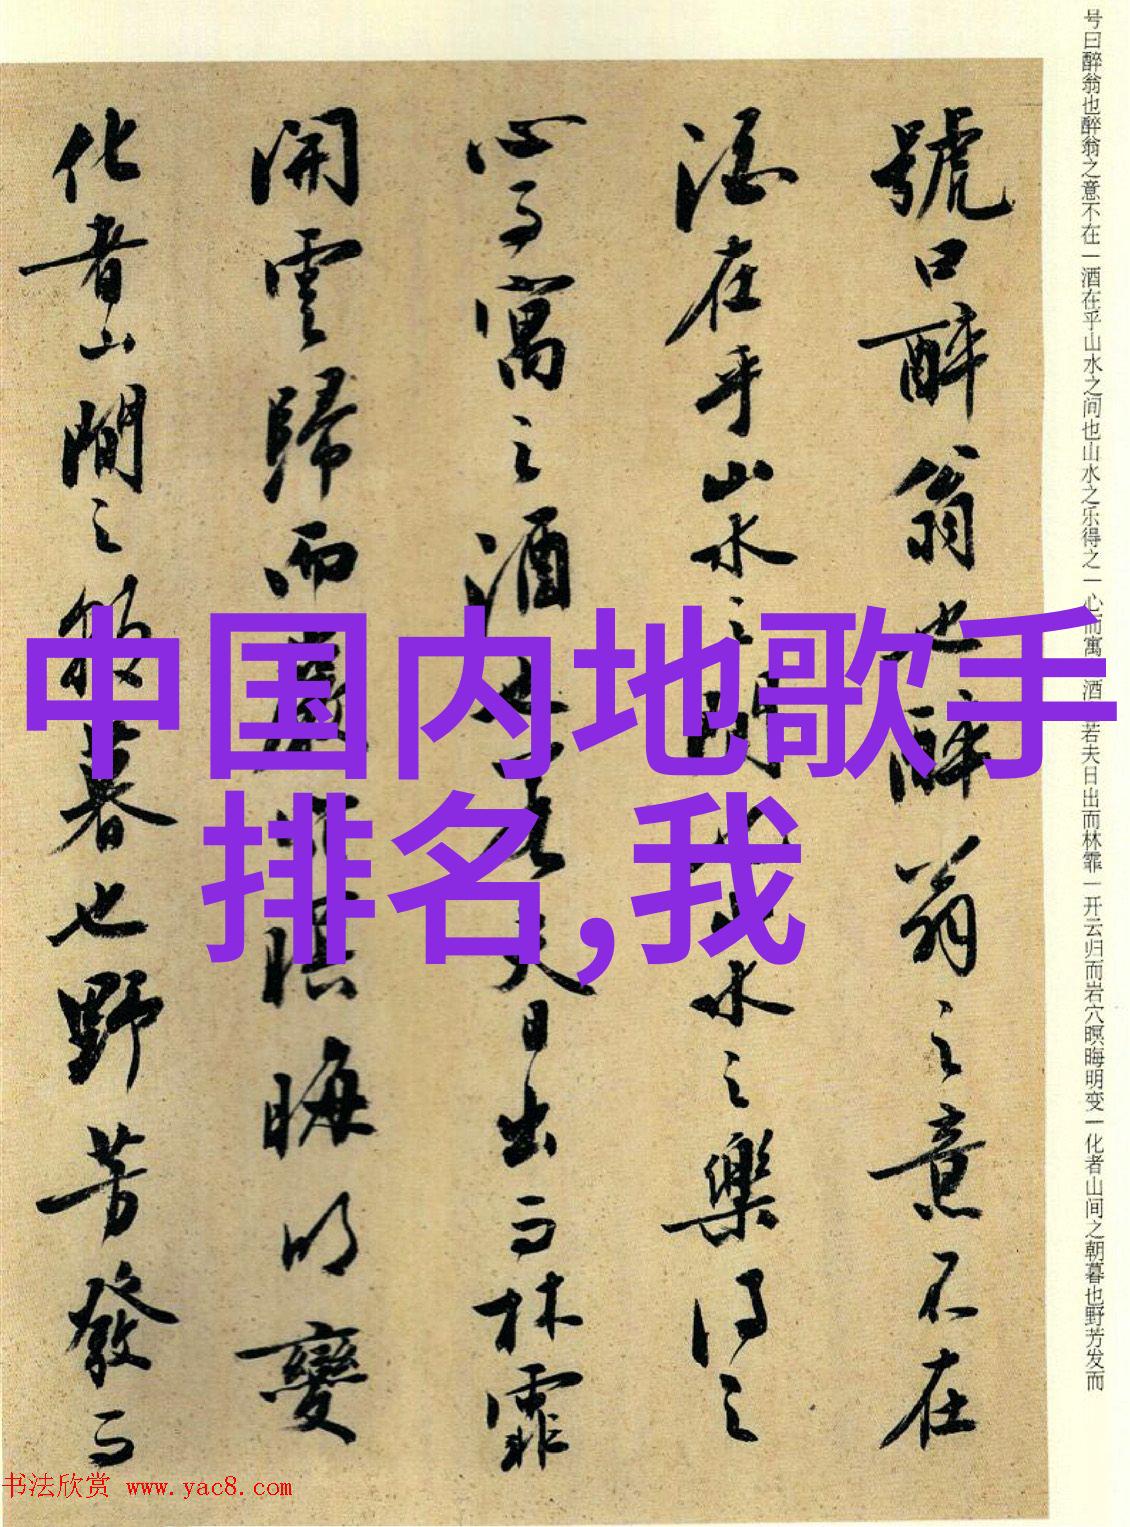 号曰醉翁也醉翁之意不在一酒在乎山水之间也山水之乐得之一心而寓 酒 若夫日出而林霏一开云归而岩穴暝晦明变一化者山间之朝暮也野芳发而
號曰醉翁也醉翁之意不在
酒在乎山水之間也山水之樂得之
心而寓之酒也若夫日出而林霏
開雲歸而巖穴暝晦明變
化者山間之朝暮也野芳發而
中国内地歌手
排名,我
书法欣赏 www.yac8.com